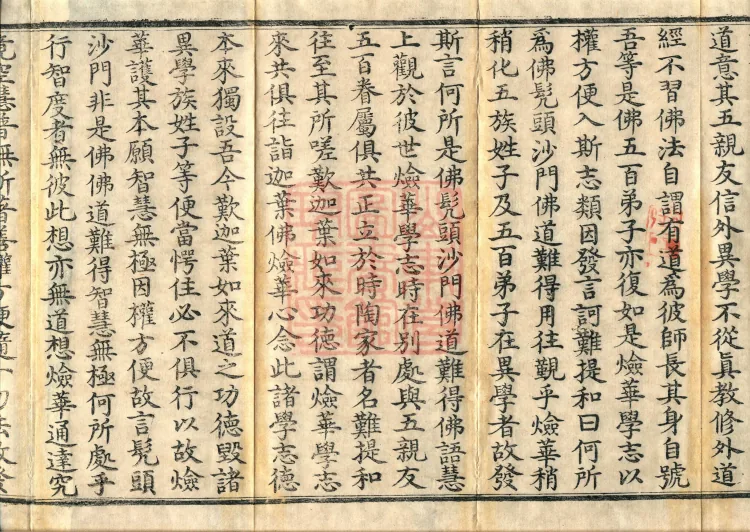 道意其五親友信外異學不從眞教修外道
經不習佛法自謂有道爲彼師長其身自號
吾等是佛五百弟子亦復如是爓華學志以
權方便入斯志類因發言訶難提和曰何所
爲佛髡頭沙門佛道難得用往覲乎爓華稍
稍化五族姓子及五百弟子在異學者故發
斯言何所是佛髡頭沙門佛道難得佛語慧
上觀於彼世爓華學志時在别處與五親友
五百眷屬俱共正立於時陶家者名難提和
往至其所嗟歎迦葉如來功德謂爓華學志
來共俱往詣迦葉佛爓華心念此諸學志德
本來獨設吾今歎迦葉如來道之功德毀諸
異學族姓子等便當愕住必不俱行以故爓
華護其本願智慧無極因權方便故言髡頭
沙門非是佛佛道難得智慧無極何所處乎
行智度者無彼此想亦無道想爓華通達究
竟空慧普無所著善權方便度一切法故發